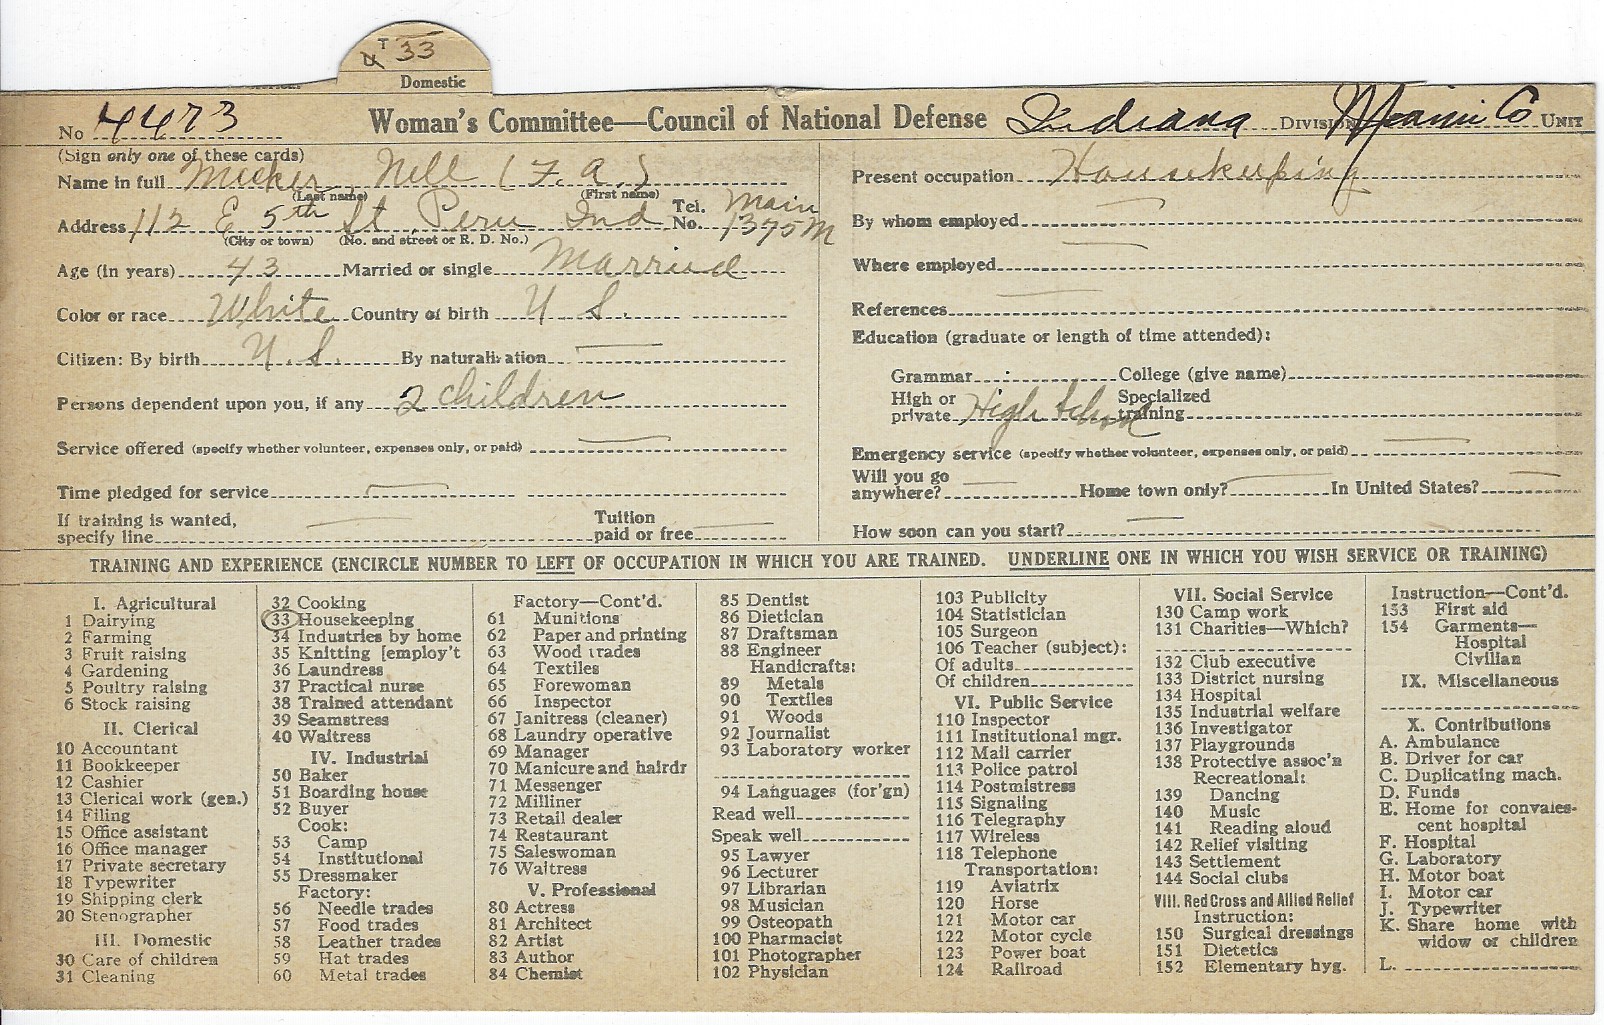 T
U 33
Domestic
No 4473 Woman's Committee—Council of National Defense Indiana DIVISION Miami Co UNIT
(Sign only one of these cards)
Name in full Meeker, Nell (F. A.)
(Last name) (First name)
Address 112 E 5th St Peru Ind Tel. No. Main 1375M
(City or town) (No. and street or R. D. No.)
Age (in years) 43 Married or single Married
Color or race White Country of birth U S.
Citizen: By birth U. S. By naturalization —
Persons dependent upon you, if any 2 children
Service offered (specify whether volunteer, expenses only, or paid) —
Time pledged for service —
If training is wanted, specify line — Tuition paid or free —
Present occupation Housekeeping
By whom employed —
Where employed —
References —
Education (graduate or length of time attended):
Grammar College (give name)
High or private High School Specialized training
Emergency service (specify whether volunteer, expenses only, or paid) —
Will you go anywhere? — Home town only? — In United States? —
How soon can you start? —
TRAINING AND EXPERIENCE (ENCIRCLE NUMBER TO LEFT OF OCCUPATION IN WHICH YOU ARE TRAINED. UNDERLINE ONE IN WHICH YOU WISH SERVICE OR TRAINING)
I. Agricultural
1 Dairying
2 Farming
3 Fruit raising
4 Gardening
5 Poultry raising
6 Stock raising
II. Clerical
10 Accountant
11 Bookkeeper
12 Cashier
13 Clerical work (gen.)
14 Filing
15 Office assistant
16 Office manager
17 Private secretary
18 Typewriter
19 Shipping clerk
20 Stenographer
III. Domestic
30 Care of children
31 Cleaning
32 Cooking
33 Housekeeping
34 Industries by home
35 Knitting [employ't
36 Laundress
37 Practical nurse
38 Trained attendant
39 Seamstress
40 Waitress
IV. Industrial
50 Baker
51 Boarding house
52 Buyer
Cook:
53 Camp
54 Institutional
55 Dressmaker
Factory:
56 Needle trades
57 Food trades
58 Leather trades
59 Hat trades
60 Metal trades
Factory—Cont'd.
61 Munitions
62 Paper and printing
63 Wood trades
64 Textiles
65 Forewoman
66 Inspector
67 Janitress (cleaner)
68 Laundry operative
69 Manager
70 Manicure and hairdr
71 Messenger
72 Milliner
73 Retail dealer
74 Restaurant
75 Saleswoman
76 Waitress
V. Professional
80 Actress
81 Architect
82 Artist
83 Author
84 Chemist
85 Dentist
86 Dietician
87 Draftsman
88 Engineer
Handicrafts:
89 Metals
90 Textiles
91 Woods
92 Journalist
93 Laboratory worker
94 Languages (for'gn)
Read well
Speak well
95 Lawyer
96 Lecturer
97 Librarian
98 Musician
99 Osteopath
100 Pharmacist
101 Photographer
102 Physician
103 Publicity
104 Statistician
105 Surgeon
106 Teacher (subject):
Of adults
Of children
VI. Public Service
110 Inspector
111 Institutional mgr.
112 Mail carrier
113 Police patrol
114 Postmistress
115 Signaling
116 Telegraphy
117 Wireless
118 Telephone
Transportation:
119 Aviatrix
120 Horse
121 Motor car
122 Motor cycle
123 Power boat
124 Railroad
VII. Social Service
130 Camp work
131 Charities—Which?
132 Club executive
133 District nursing
134 Hospital
135 Industrial welfare
136 Investigator
137 Playgrounds
138 Protective assoc'n
Recreational:
139 Dancing
140 Music
141 Reading aloud
142 Relief visiting
143 Settlement
144 Social clubs
VIII. Red Cross and Allied Relief
Instruction:
150 Surgical dressings
151 Dietetics
152 Elementary hyg.
Instruction—Cont'd.
153 First aid
154 Garments—
Hospital
Civilian
IX. Miscellaneous
X. Contributions
A. Ambulance
B. Driver for car
C. Duplicating mach.
D. Funds
E. Home for convales-
cent hospital
F. Hospital
G. Laboratory
H. Motor boat
I. Motor car
J. Typewriter
K. Share home with
widow or children
L.